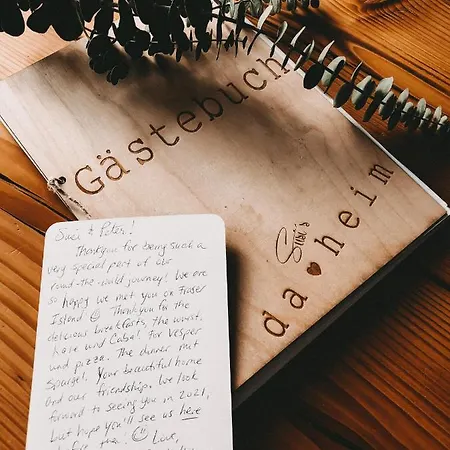 Gästebuch
Susi's
da heim
Susi & Peter!
Thankyou for being such a
very special part of our
round-the-world journey! We are
so happy we met you on Fraser
Island ☺ Thankyou for the
delicious breakfasts, the wurst,
kase und Cabal. for Vesper
und pizza. The dinner mit
Spargel. Your beautiful home
and our friendship. We look
forward to seeing you in 2021,
but hope you'll see us here
before then! ☺ Love,